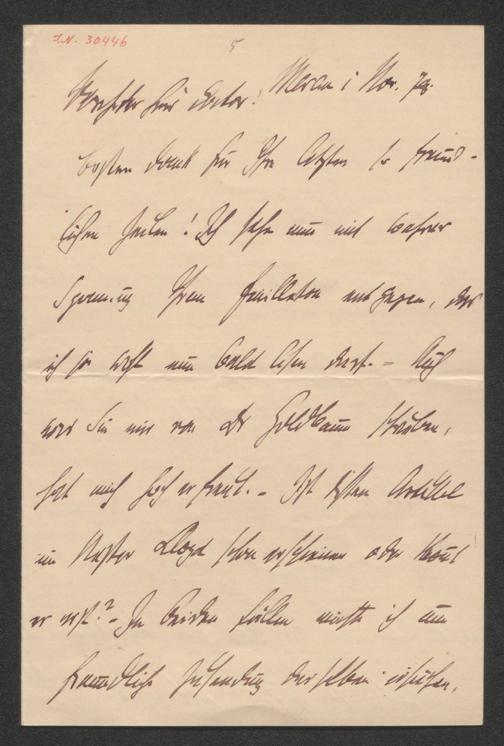 I.N. 30446
5
Meran 1 Nov. 79.
Verehrter Herr Doctor!
besten Dank für Ihre letzten so freund-
lichen Zeilen! Ich sehe nun mit wahrer
Spannung Ihrem Feuilleton entgegen, das
ich ja wohl nun bald lesen darf. – Auch
was Sie mir von Dr Goldbaum schreiben,
hat mich hoch erfreut. – Ist dessen Artikel
im Pester Lloyd schon erschienen oder kommt
er erst? – In beiden Fällen möchte ich um
freundliche Zusendung desselben ersuchen,